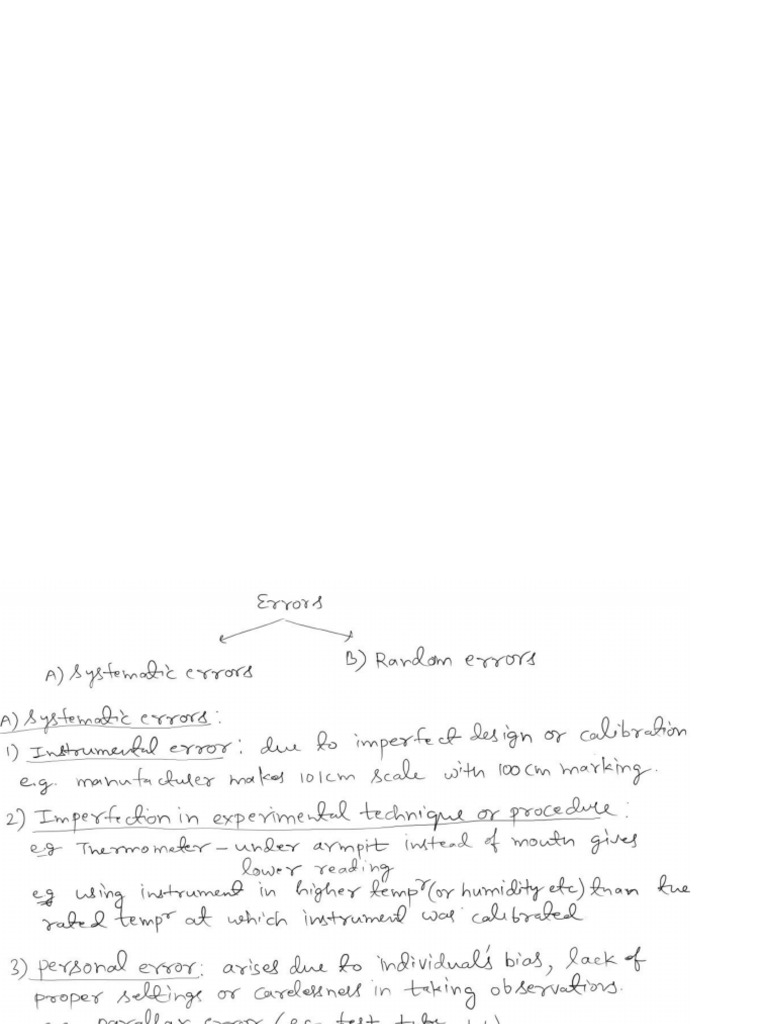 Errors
A) Systematic errors
B) Random errors
A) Systematic errors:
1) Instrumental error: due to imperfect design or calibration
e.g. manufacturer makes 101cm scale with 100cm marking.
2) Imperfection in experimental technique or procedure:
eg Thermometer – under armpit instead of mouth gives
lower reading
eg using instrument in higher tempr (or humidity etc) than the
rated tempr at which instrument was calibrated
3) personal error: arises due to individual's bias, lack of
proper settings or carelessness in taking observations.
parallax error (